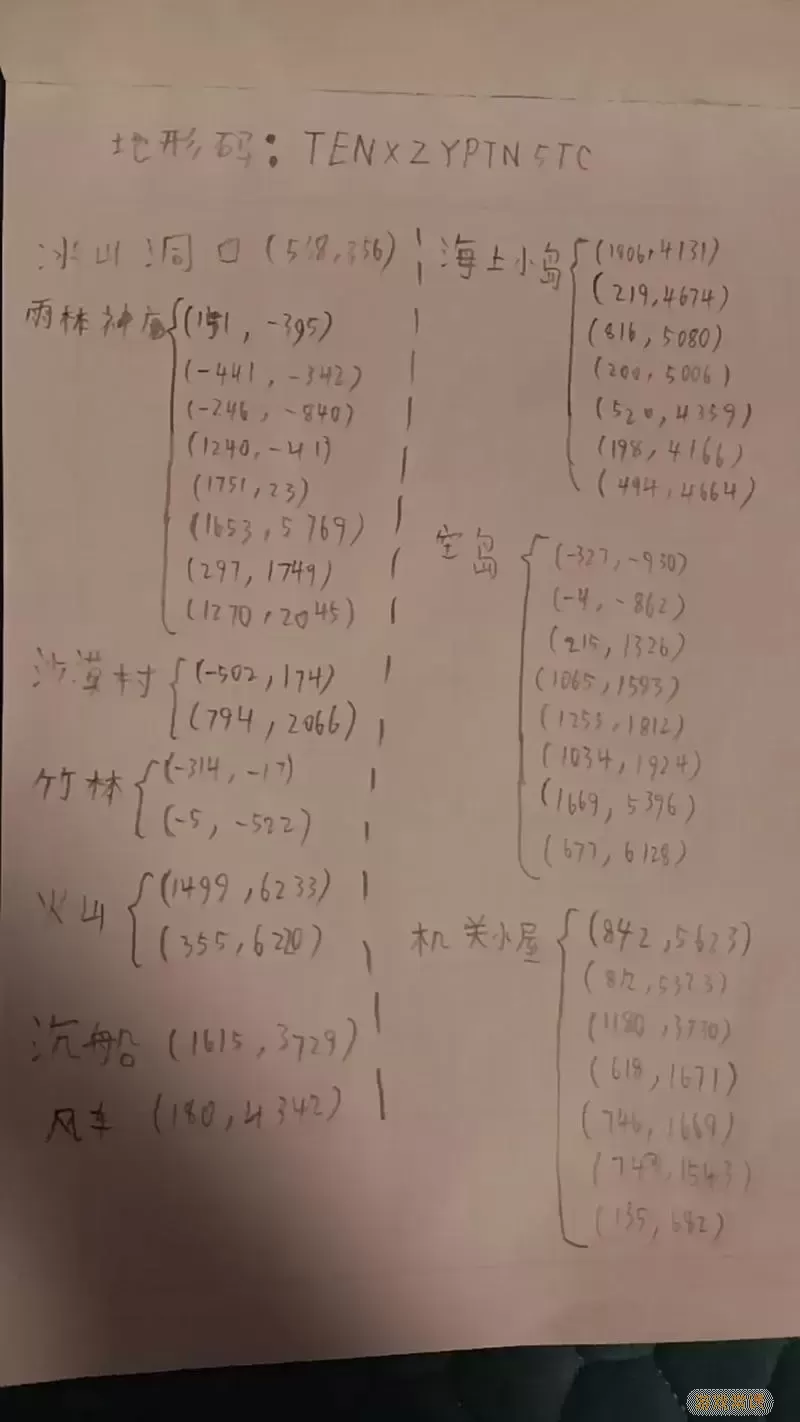 地形码：TENXZYPTN5TC
冰山洞口
雨林神庙
(-441, -342)
(-246, -840)
(1240, -41)
(1751, 23)
(1653, 5769)
(297, 1749)
(1270, 2045)
沙漠村 (-502, 174)
(794, 2066)
竹林 (-314, -17)
(-5, -522)
火山 (1499, 6233)
沉船 (1615, 3729)
风车 (180, 4342)
海上小岛
(219, 4674)
(816, 5080)
(200, 5006)
(520, 4359)
(198, 4166)
(494, 4664)
空岛 (-327, -930)
(-4, -862)
(215, 1326)
(1065, 1593)
(1253, 1812)
(1034, 1924)
(1669, 5396)
(677, 6128)
机关小屋 (842, 5623)
(618, 1671)
(746, 1669)
(135, 682)